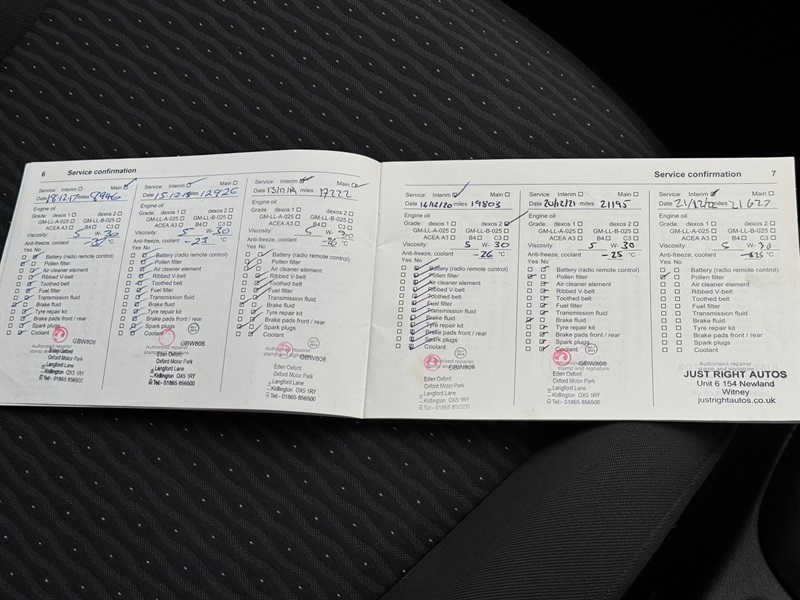 6 Service confirmation
Service: Interim Main
Date 18.12.17 miles 8946
Engine oil
Grade: dexos 1 dexos 2
GM-LL-A-025 GM-LL-B-025
ACEA A3 B4 C3
Viscosity 5 W- 30
Anti-freeze, coolant °C
Yes No
Battery (radio remote control)
Pollen filter
Air cleaner element
Ribbed V-belt
Toothed belt
Fuel filter
Transmission fluid
Brake fluid
Tyre repair kit
Brake pads front / rear
Spark plugs
Coolant
GBW808
Authorised repairer
stamp and signature
Eden Oxford
Oxford Motor Park
Langford Lane
Kidlington OX5 1RY
Tel:- 01865 856500
Service: Interim Main
Date 15.12.18 miles 12926
Engine oil
Grade: dexos 1 dexos 2
GM-LL-A-025 GM-LL-B-025
ACEA A3 B4 C3
Viscosity 5 W- 30
Anti-freeze, coolant -23 °C
Yes No
Battery (radio remote control)
Pollen filter
Air cleaner element
Ribbed V-belt
Toothed belt
Fuel filter
Transmission fluid
Brake fluid
Tyre repair kit
Brake pads front / rear
Spark plugs
Coolant
GBW808
Authorised repairer
stamp and signature
Eden Oxford
Oxford Motor Park
Langford Lane
Kidlington OX5 1RY
Tel:- 01865 856500
Service: Interim Main
Date 13/12/19 miles 17222
Engine oil
Grade: dexos 1 dexos 2
GM-LL-A-025 GM-LL-B-025
ACEA A3 B4 C3
Viscosity 5 W- 30
Anti-freeze, coolant -26 °C
Yes No
Battery (radio remote control)
Pollen filter
Air cleaner element
Ribbed V-belt
Toothed belt
Fuel filter
Transmission fluid
Brake fluid
Tyre repair kit
Brake pads front / rear
Spark plugs
Coolant
GBW808
Authorised repairer
stamp and signature
Eden Oxford
Oxford Motor Park
Langford Lane
Kidlington OX5 1RY
Tel:- 01865 856500
Service confirmation 7
Service: Interim Main
Date 16/12/20 miles 19803
Engine oil
Grade: dexos 1 dexos 2
GM-LL-A-025 GM-LL-B-025
ACEA A3 B4 C3
Viscosity 5 W- 30
Anti-freeze, coolant -26 °C
Yes No
Battery (radio remote control)
Pollen filter
Air cleaner element
Ribbed V-belt
Toothed belt
Fuel filter
Transmission fluid
Brake fluid
Tyre repair kit
Brake pads front / rear
Spark plugs
Coolant
GBW808
Authorised repairer
stamp and signature
Eden Oxford
Oxford Motor Park
Langford Lane
Kidlington OX5 1RY
Tel:- 01865 856500
Service: Interim Main
Date 20/12/21 miles 21195
Engine oil
Grade: dexos 1 dexos 2
GM-LL-A-025 GM-LL-B-025
ACEA A3 B4 C3
Viscosity 5 W- 30
Anti-freeze, coolant -25 °C
Yes No
Battery (radio remote control)
Pollen filter
Air cleaner element
Ribbed V-belt
Toothed belt
Fuel filter
Transmission fluid
Brake fluid
Tyre repair kit
Brake pads front / rear
Spark plugs
Coolant
GBW808
Authorised repairer
stamp and signature
Eden Oxford
Oxford Motor Park
Langford Lane
Kidlington OX5 1RY
Tel:- 01865 856500
Service: Interim Main
Date 21/12/22 miles 21627
Engine oil
Grade: dexos 1 dexos 2
GM-LL-A-025 GM-LL-B-025
ACEA A3 B4 C3
Viscosity 5 W- 30
Anti-freeze, coolant °C
Yes No
Battery (radio remote control)
Pollen filter
Air cleaner element
Ribbed V-belt
Toothed belt
Fuel filter
Transmission fluid
Brake fluid
Tyre repair kit
Brake pads front / rear
Spark plugs
Coolant
Authorised repairer
JUST RIGHT AUTOS
Unit 6 154 Newland
Witney
justrightautos.co.uk